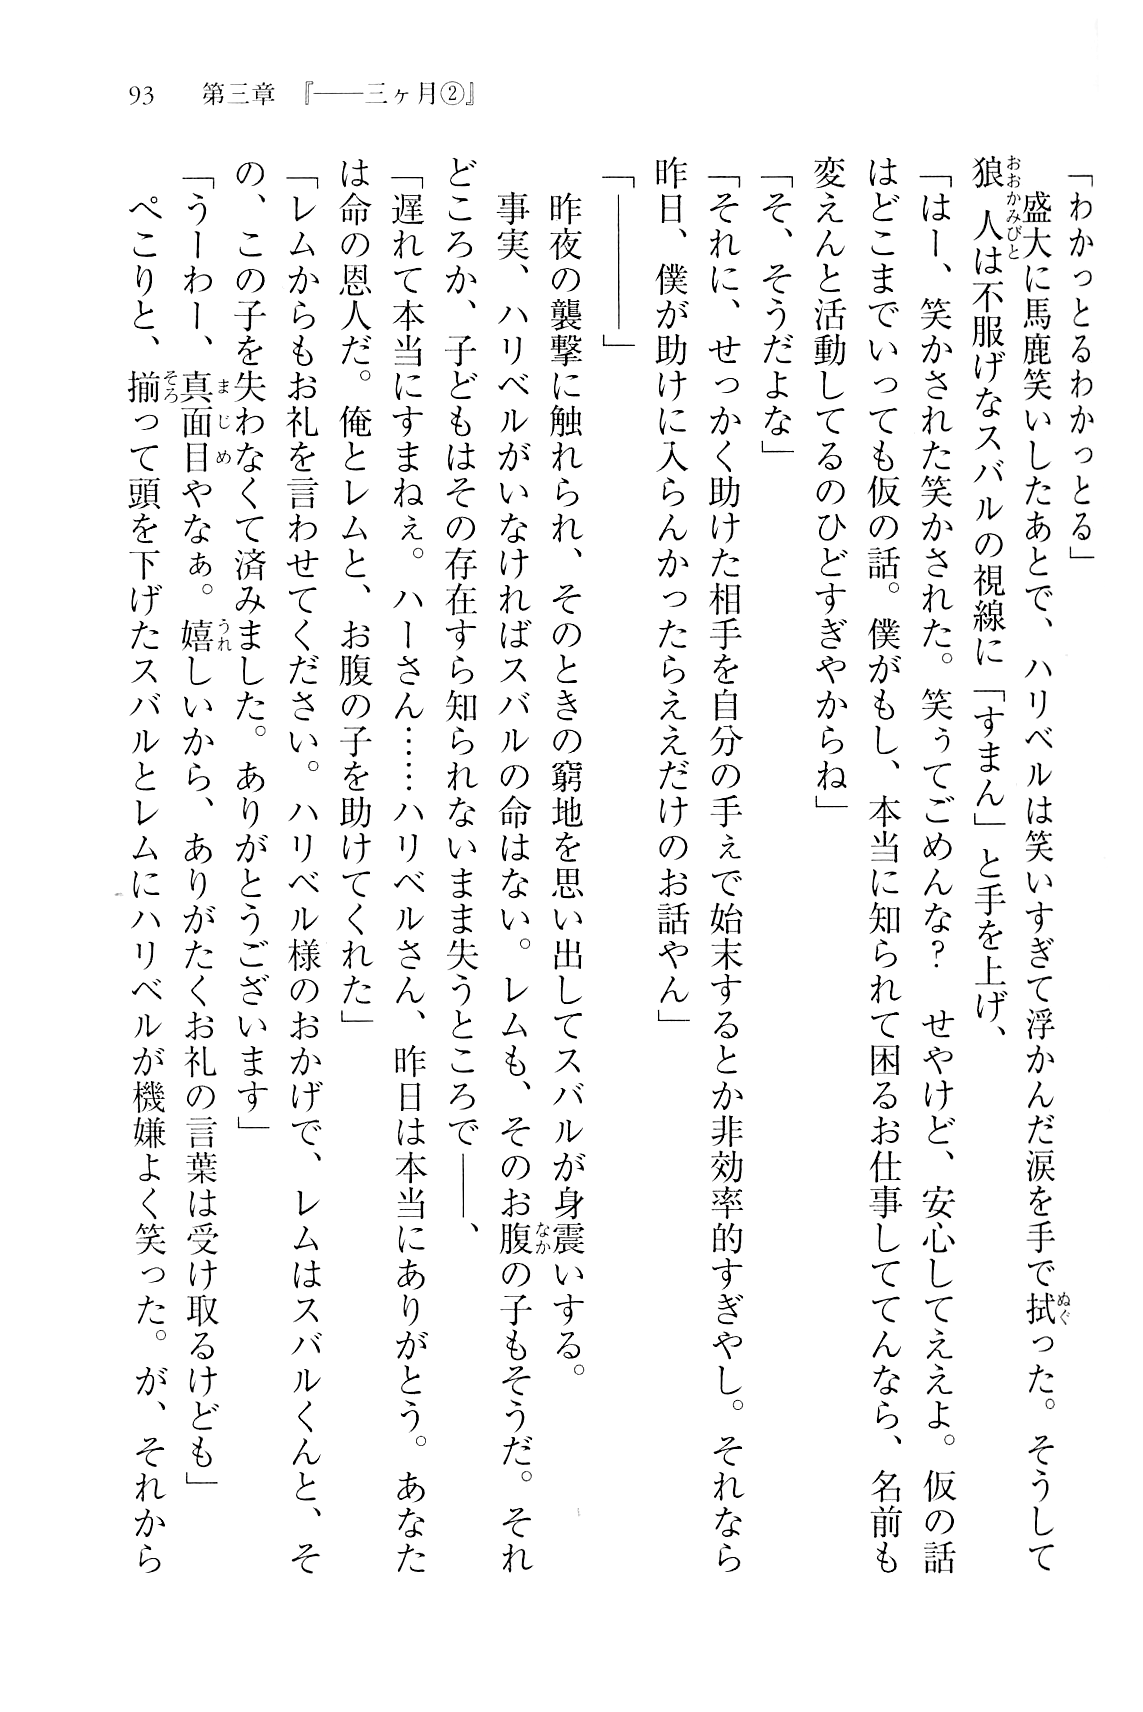 93　第三章　『――三ヶ月②』
「わかっとるわかっとる」
　盛大に馬鹿笑いしたあとで、ハリベルは笑いすぎて浮かんだ涙を手で拭った。そうして
狼人は不服げなスバルの視線に「すまん」と手を上げ、
「はー、笑かされた笑かされた。笑ぅてごめんな？　せやけど、安心してええよ。仮の話
はどこまでいっても仮の話。僕がもし、本当に知られて困るお仕事しててんなら、名前も
変えんと活動してるのひどすぎやからね」
「そ、そうだよな」
「それに、せっかく助けた相手を自分の手ぇで始末するとか非効率的すぎやし。それなら
昨日、僕が助けに入らんかったらええだけのお話やん」
「――――」
　昨夜の襲撃に触れられ、そのときの窮地を思い出してスバルが身震いする。
　事実、ハリベルがいなければスバルの命はない。レムも、そのお腹の子もそうだ。それ
どころか、子どもはその存在すら知られないまま失うところで――、
「遅れて本当にすまねぇ。ハーさん……ハリベルさん、昨日は本当にありがとう。あなた
は命の恩人だ。俺とレムと、お腹の子を助けてくれた」
「レムからもお礼を言わせてください。ハリベル様のおかげで、レムはスバルくんと、そ
の、この子を失わなくて済みました。ありがとうございます」
「うーわー、真面目やなぁ。嬉しいから、ありがたくお礼の言葉は受け取るけども」
　ぺこりと、揃って頭を下げたスバルとレムにハリベルが機嫌よく笑った。が、それから